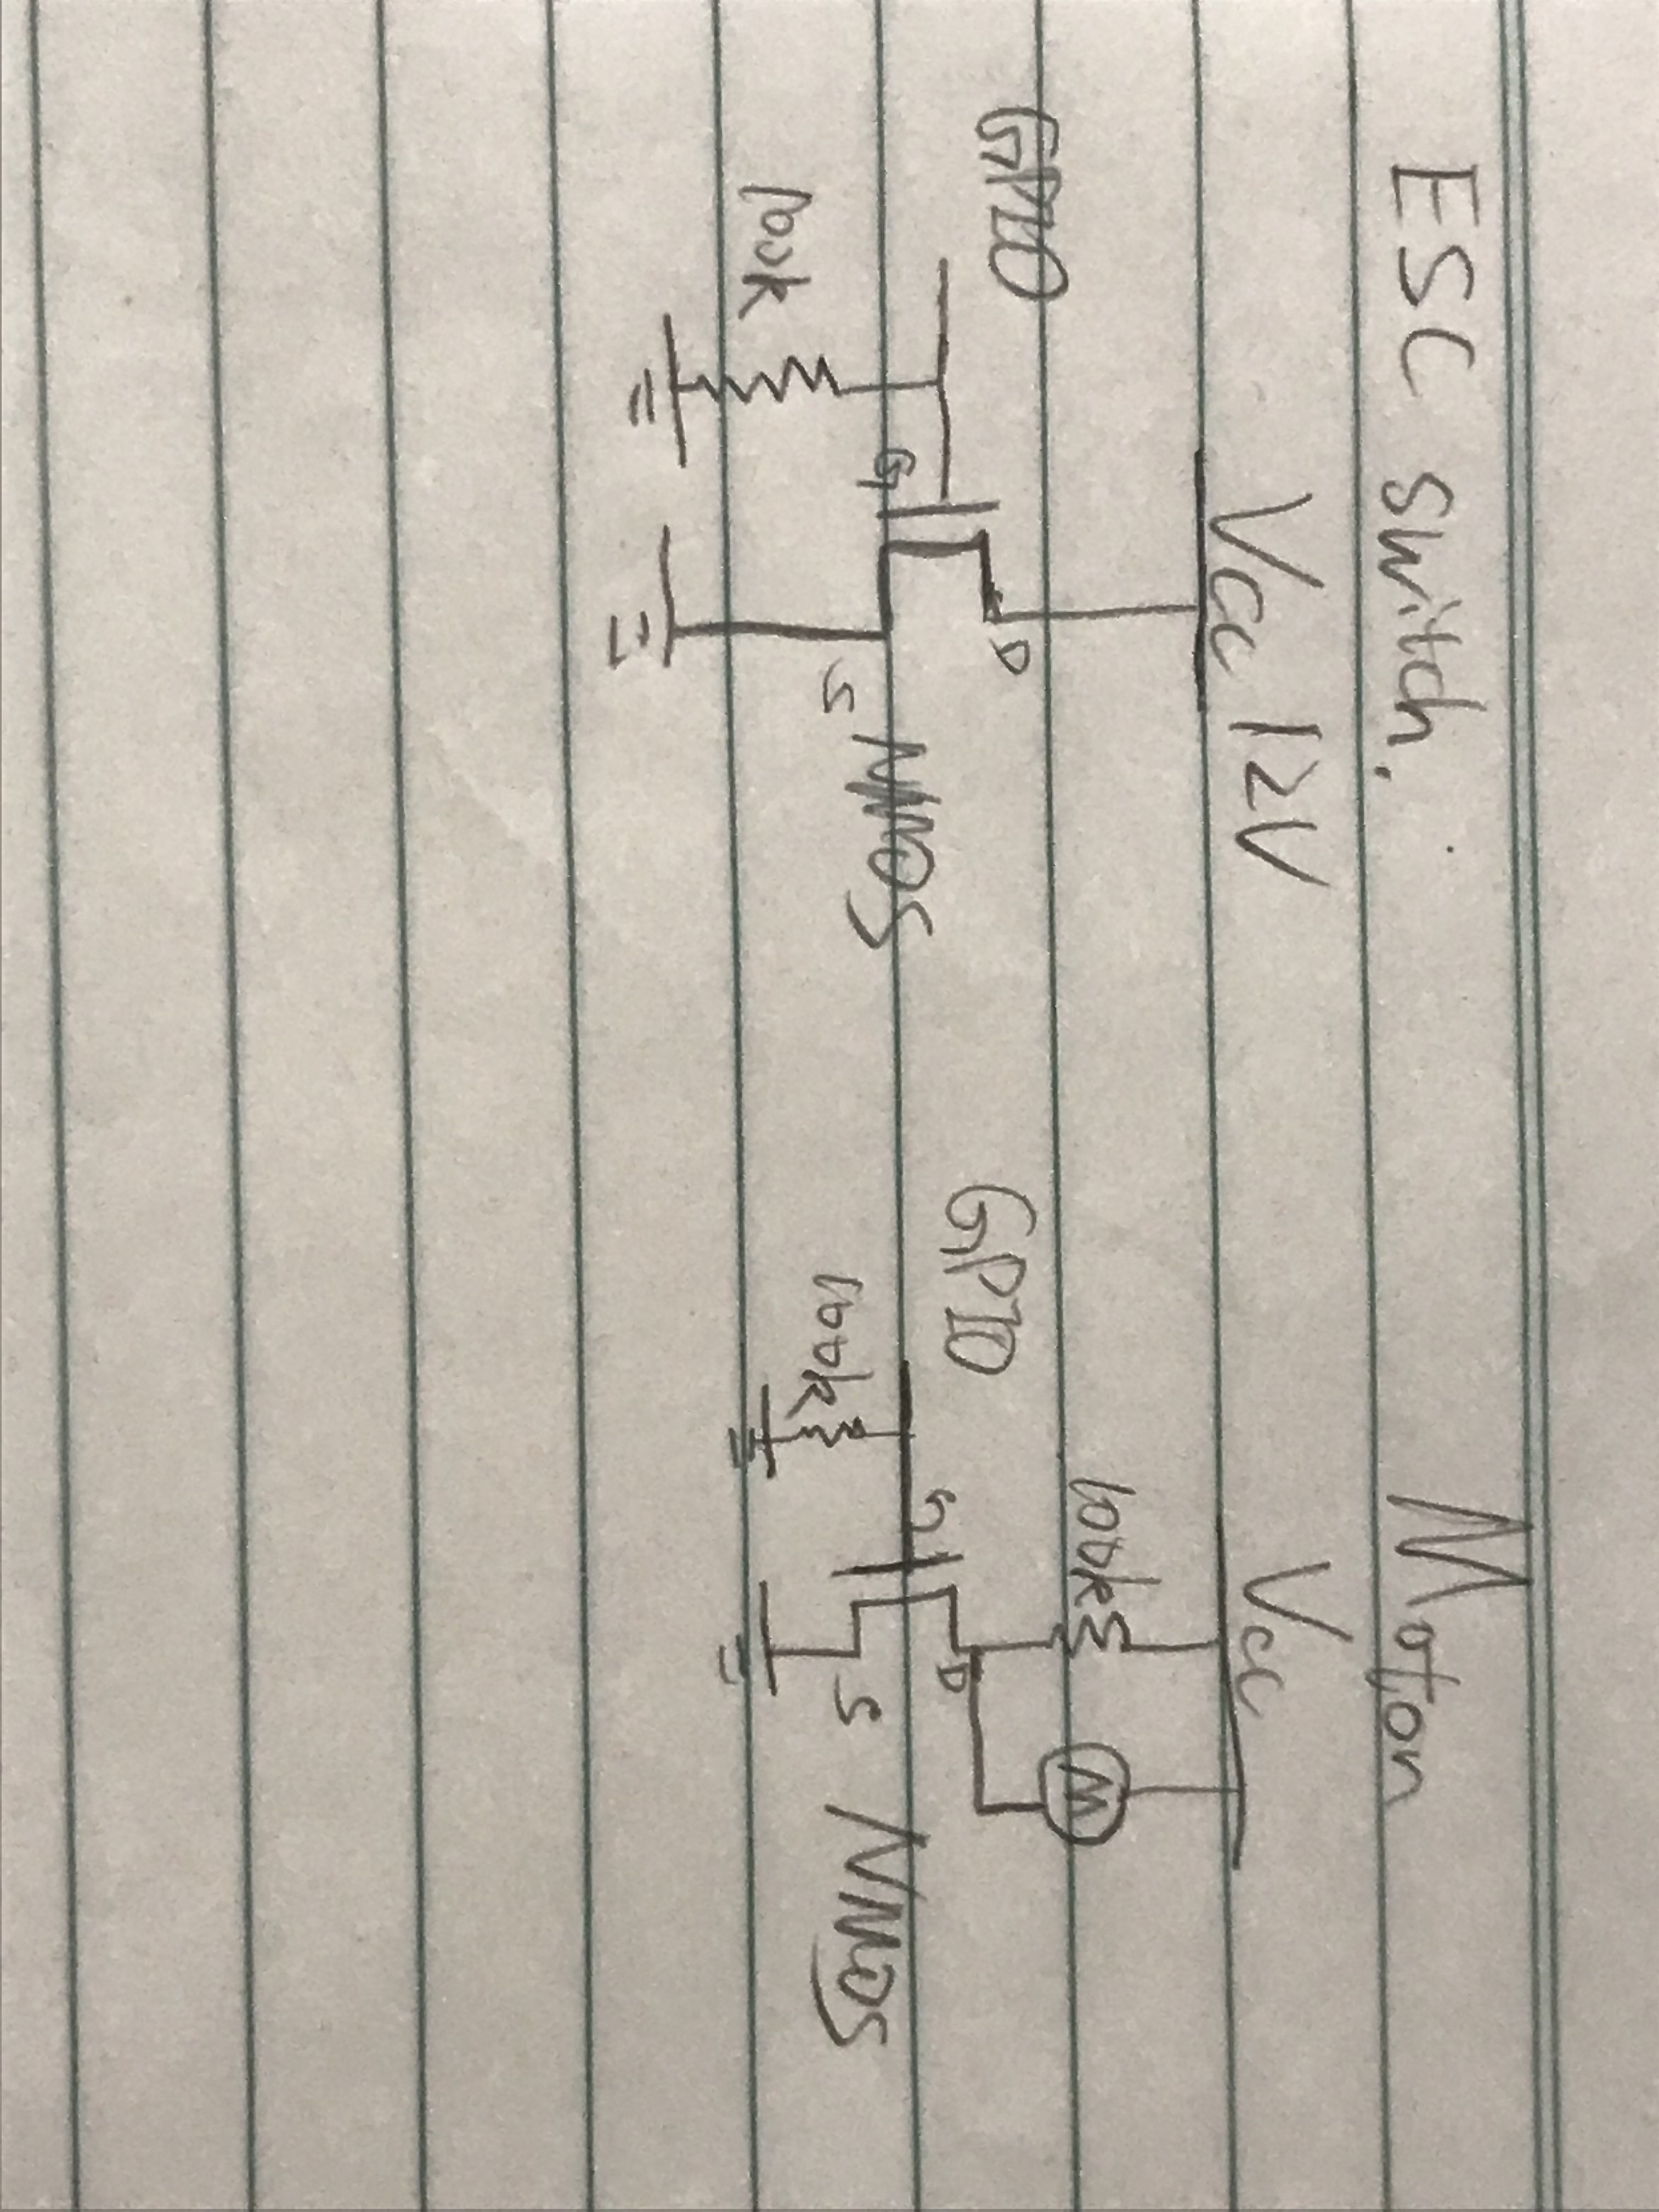 ESC switch.
Vcc 12V
GPIO
D
G
S
NMOS
100k
Moton
Vcc
100k
M
GPIO
G
D
S
NMOS
100k